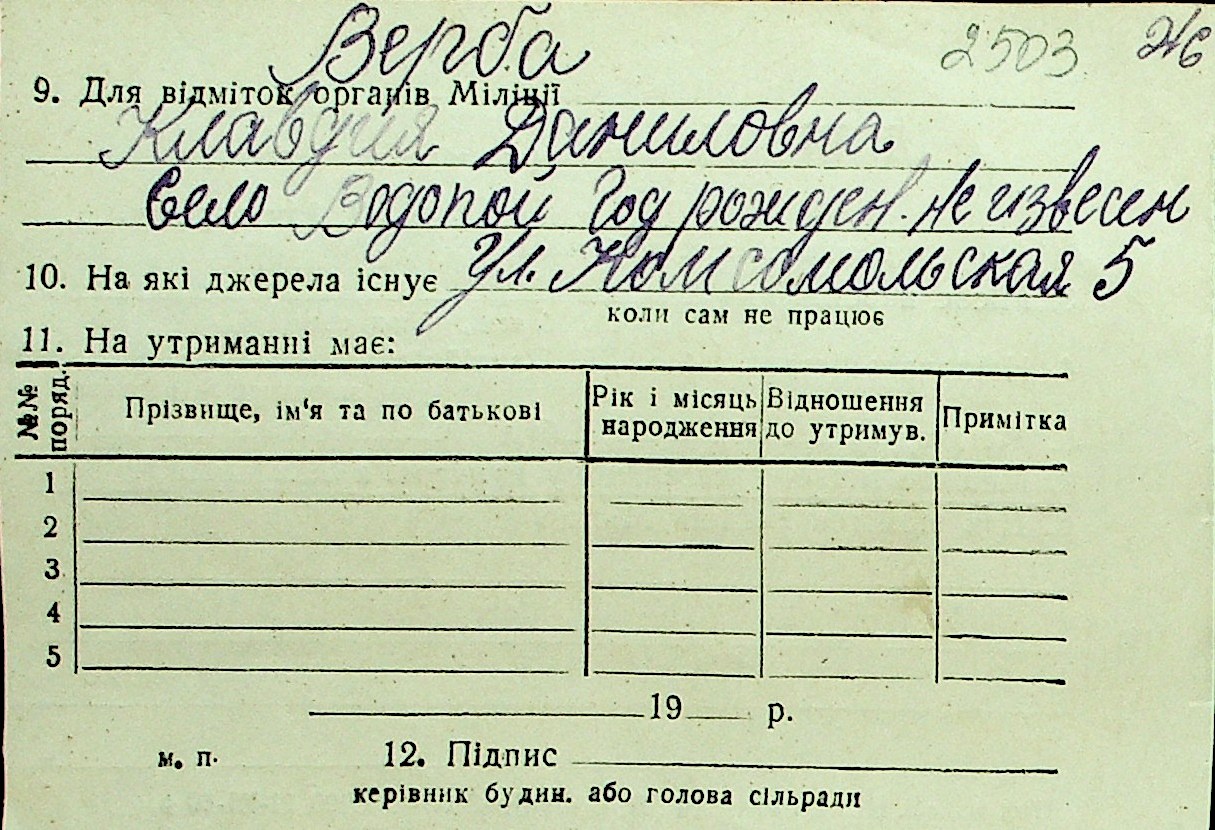 Верба 2503
9. Для відміток органів Міліції
Клавдия Даниловна
Село Водопой Год рожден. не извесен
10. На які джерела існує Ул. Комсомольская 5
коли сам не працює
11. На утриманні має:
№№ поряд. Прізвище, ім'я та по батькові Рік і місяць народження Відношення до утримув. Примітка
1
2
3
4
5
19 р.
м. п. 12. Підпис
керівник будин. або голова сільради